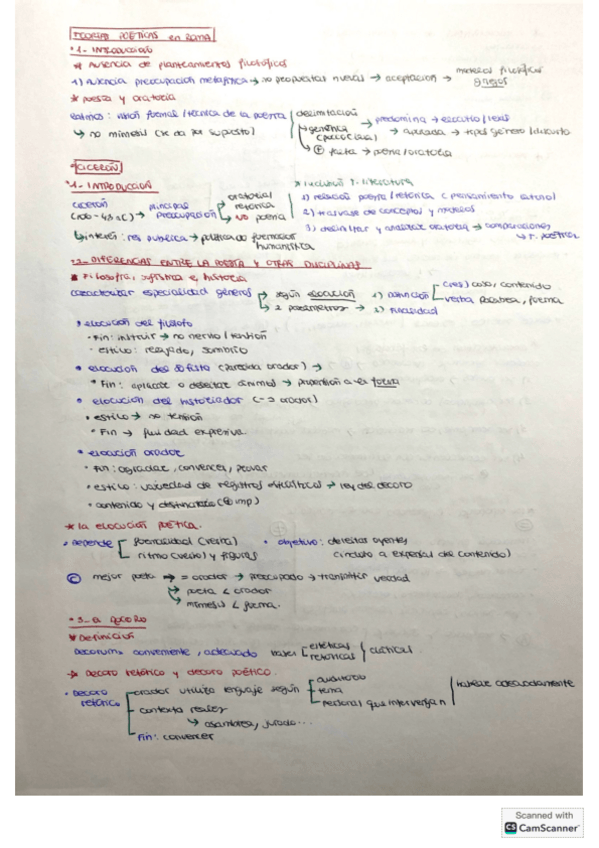 TEORÍAS POÉTICAS en ROMA
1- INTRODUCCIÓN
* Ausencia de planteamientos filosóficos
1) Ausencia preocupación metafísica → no propuestas nuevas → aceptación → modelos filosóficos griegos
* poesía y oratoria
latinos: visión formal / técnica de la poesía
delimitación
genérica
predomina → elocutio / texto
→ no mimesis (se da por supuesto)
→ adecuada → tipo género / discurso
→ poesía / oratoria
CICERÓN
1- INTRODUCCIÓN
Cicerón → principal preocupación
oratoria
retórica
NO poesía
1) relación poesía / retórica
2) trasvase de conceptos y modelos
3) delimitar y analizar oratoria → comparaciones
→ T. poética
→ interés: res publica → política do formador humanística
2- DIFERENCIAS ENTRE LA POESÍA Y OTRAS DISCIPLINAS
* Filosofía, sofística e historia
caracterizar especialidad géneros
→ según elocución
→ 2 parámetros → 1)
(res) cosa, contenido
verba palabra, forma
2) Finalidad
• elocución del filósofo
• Fin: instruir → no nervio / tensión
• estilo: relajado, sombrío
• elocución del sofista (parecida orador) →
• Fin: aplacar o deleitar ánimos → proporción a la forma
• elocución del historiador (-> orador)
• estilo → no tensión
• Fin → fluidad expresiva
• elocución orador
• Fin: agradar, convencer, probar
• estilo: variedad de registros estilísticos → ley del decoro
• contenido y destinatario (⊕ imp)
* la elocución poética.
• depende
formalidad (verba)
ritmo (verso) y figuras
• objetivo: deleitar oyentes
(incluso a expensas del contenido)
© mejor poeta → = orador → preocupado → transmitir verdad
→ poeta < orador
→ mimesis < forma.
3- el DECORO
* Definición
Decorum: conveniente, adecuado
bases
estéticas
retóricas
clásicas
* Decoro retórico y decoro poético.
• Decoro retórico
orador utiliza lenguaje según
auditorio
tema
personas que intervengan
hablar adecuadamente
contexto real
→ asamblea, jurado...
Fin: convencer
Scanned with
CS CamScanner